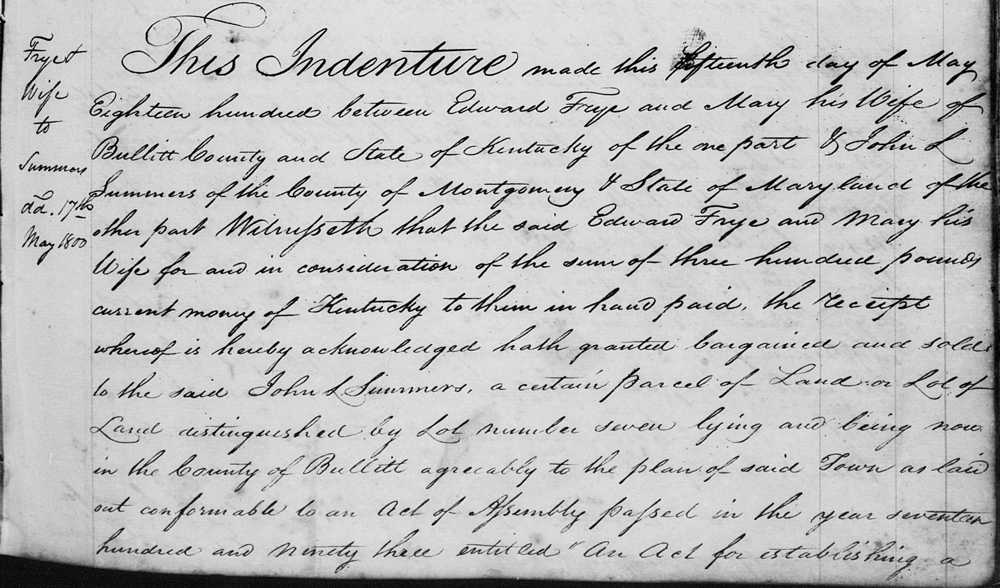 Frye &
Wife
to
Summers
dd. 17th
May 1800
This Indenture made this fifteenth day of May
Eighteen hundred between Edward Frye and Mary his Wife of
Bullitt County and State of Kentucky of the one part & John L
Summers of the County of Montgomery & State of Maryland of the
other part Witnesseth that the said Edward Frye and Mary his
Wife for and in consideration of the sum of three hundred pounds
current money of Kentucky to them in hand paid, the receipt
whereof is hereby acknowledged hath granted bargained and sold
to the said John L Summers, a certain parcel of Land or Lot of
Land distinguished by Lot number seven lying and being now
in the County of Bullitt agreeably to the plan of said Town as laid
out conformable to an Act of Assembly passed in the year seventeen
hundred and ninety three entitled "An Act for establishing a